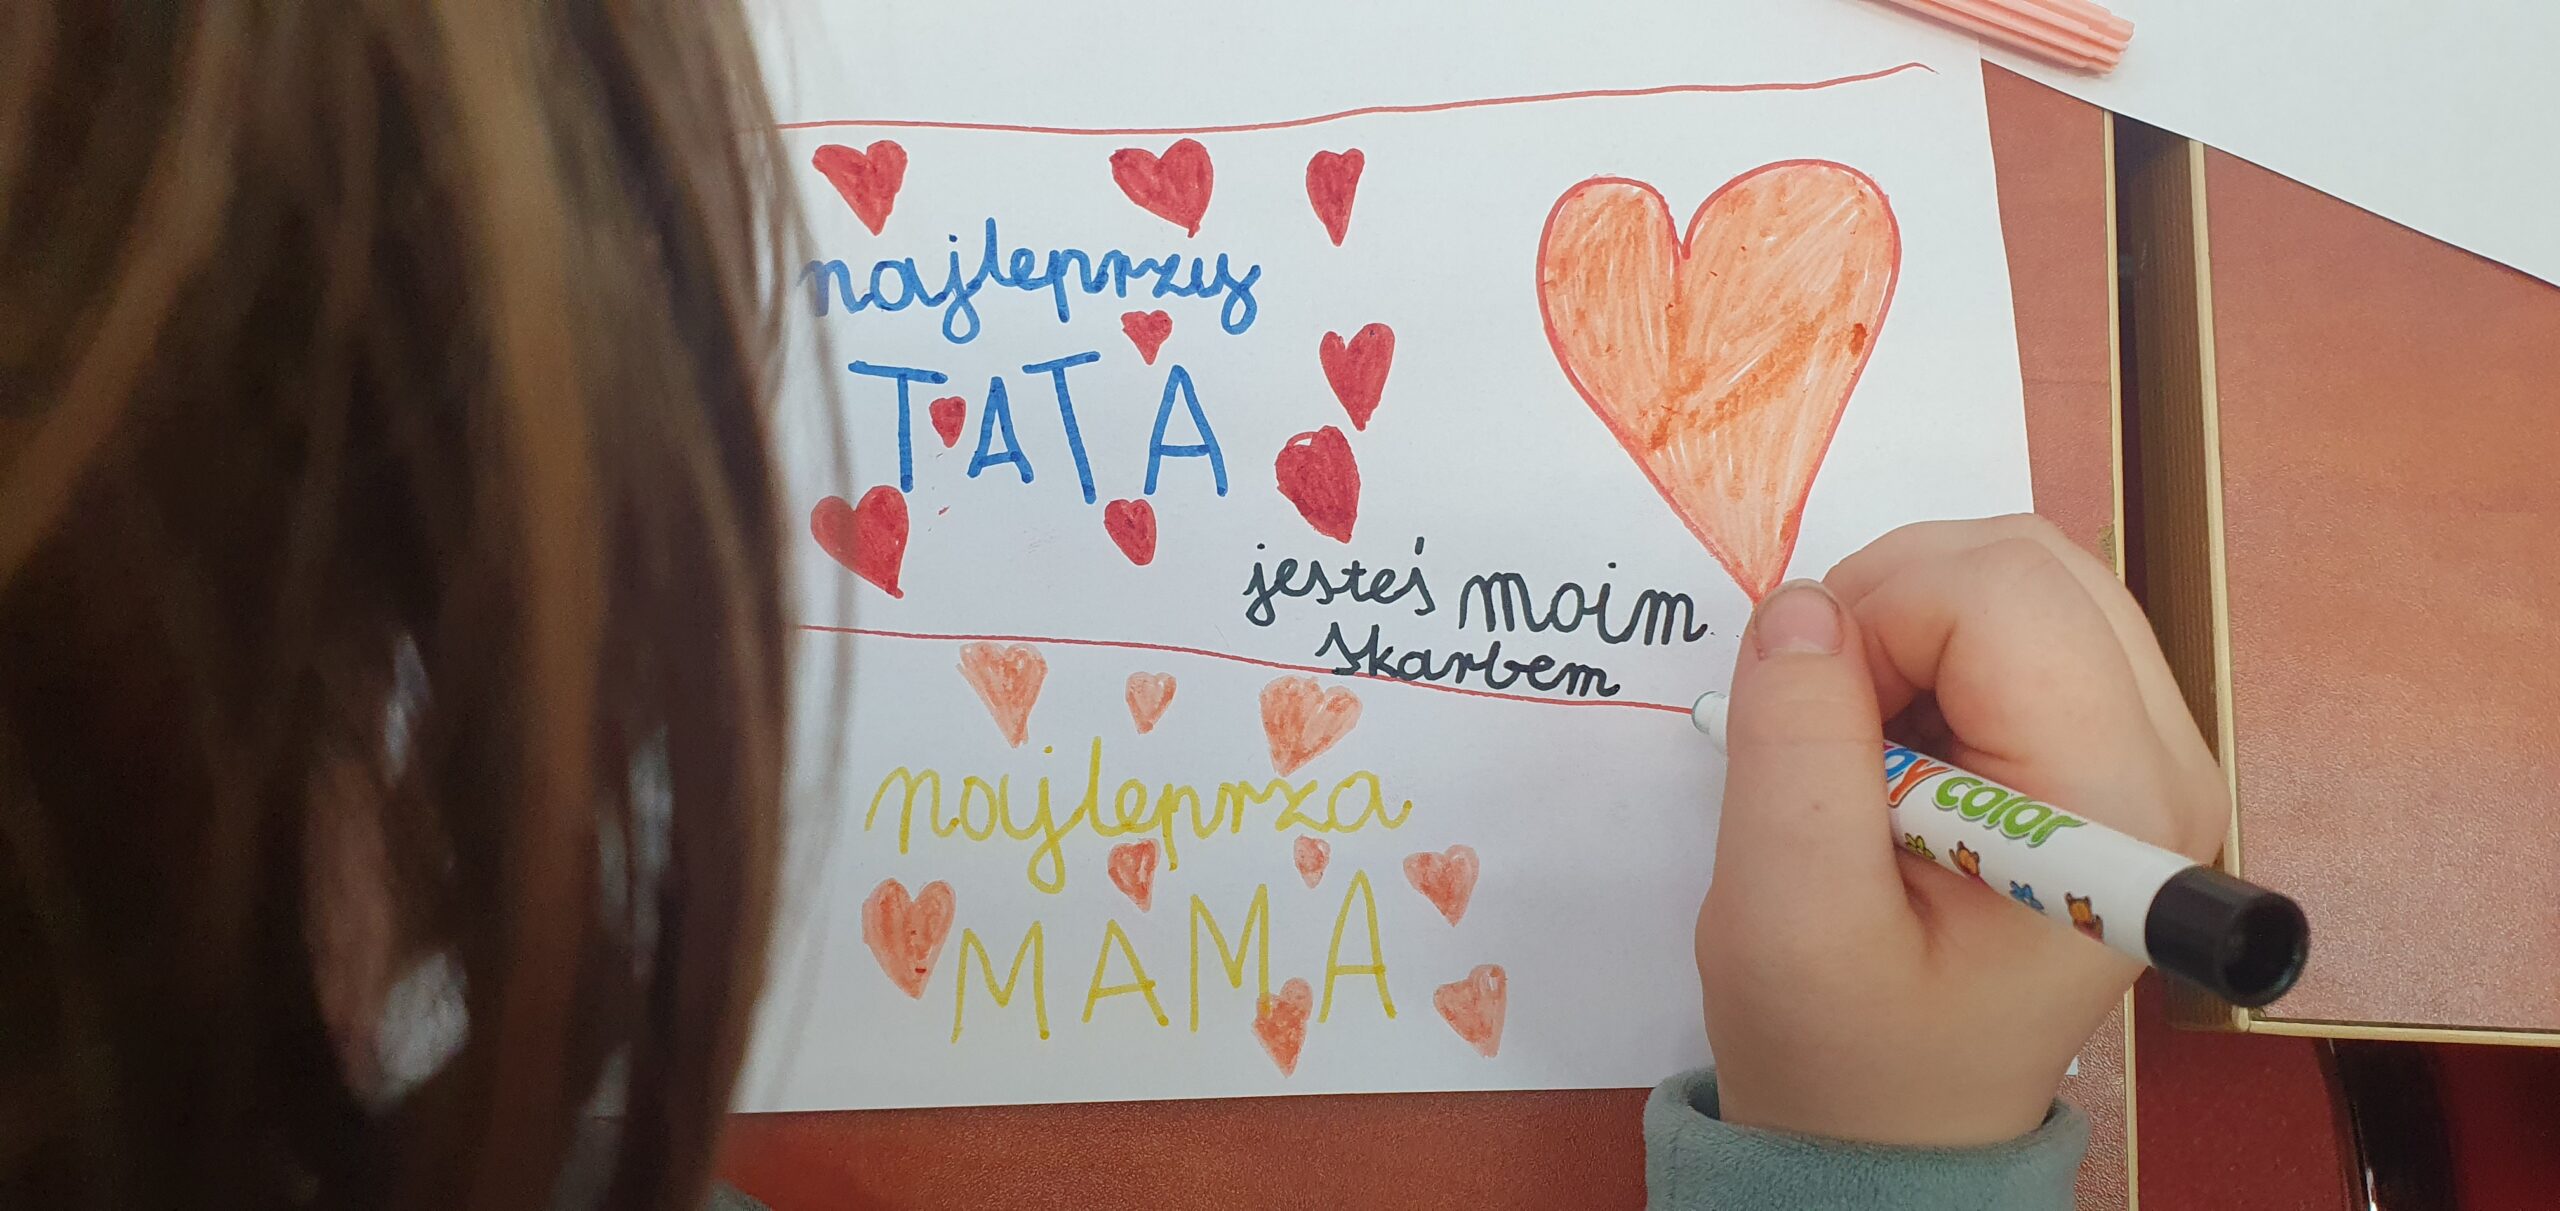 najleprzy
TATA
jesteś moim
skarbem
najleprza
MAMA
color